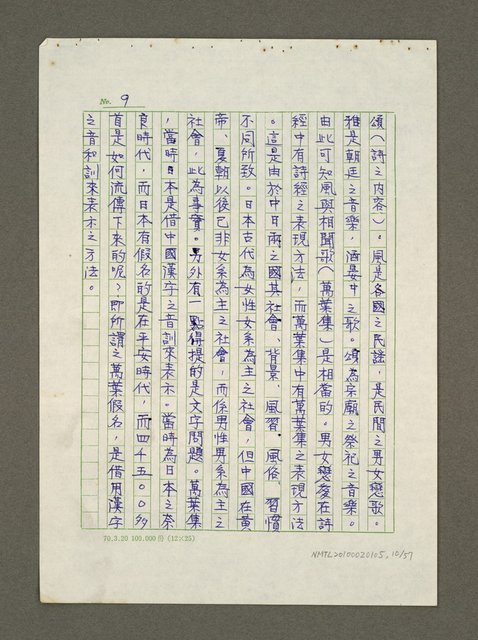 No. 9
頌(詩之內容)。風是各國之民謠，是民間之男女戀歌。
雅是朝廷之音樂，酒宴中之歌。頌為宗廟之祭祀之音樂。
由此可知風與相聞歌(萬葉集)是相當的。男女戀愛在詩
經中有詩經之表現方法，而萬葉集中有萬葉集之表現方法
。這是由於中日兩之國其社會、背景、風習、風俗、習慣
不同所致。日本古代為女性女系為主之社會，但中國在黃
帝、夏朝以後已非女系為主之社會，而係男性男系為主之
社會，此為事實。另外有一點得提的是文字問題。萬葉集
，當時日本是借中國漢字之音訓來表示。當時為日本之奈
良時代，而日本有假名的是在平安時代，而四千五〇〇多
首是如何流傳下來的呢？即所謂之萬葉假名，是借用漢字
之音和訓來表示之方法。
70.3.20 100.000份 (12×25)
NMTL20100020105, 10/57